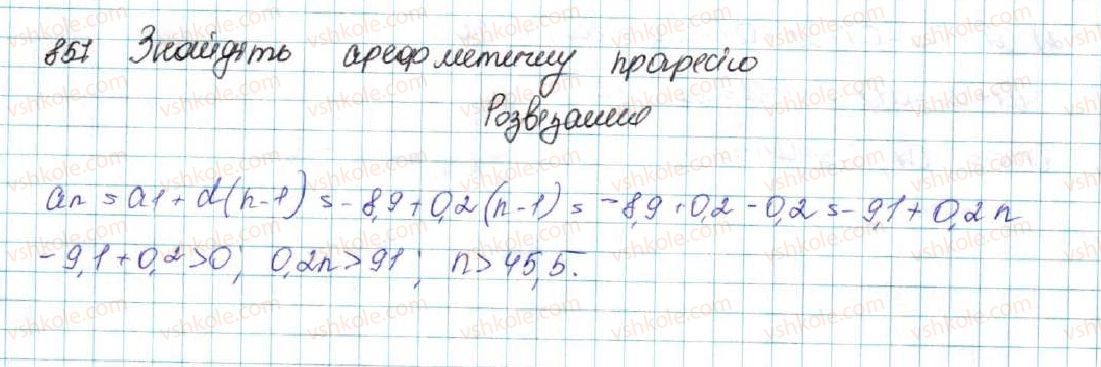 851 Знайдять арефметичну прогресію
Розвезанню
an = a1 + d(n-1) = -8,9 + 0,2(n-1) = -8,9 + 0,2 - 0,2 = -9,1 + 0,2n
-9,1 + 0,2 > 0; 0,2n > 91; n > 45,5.